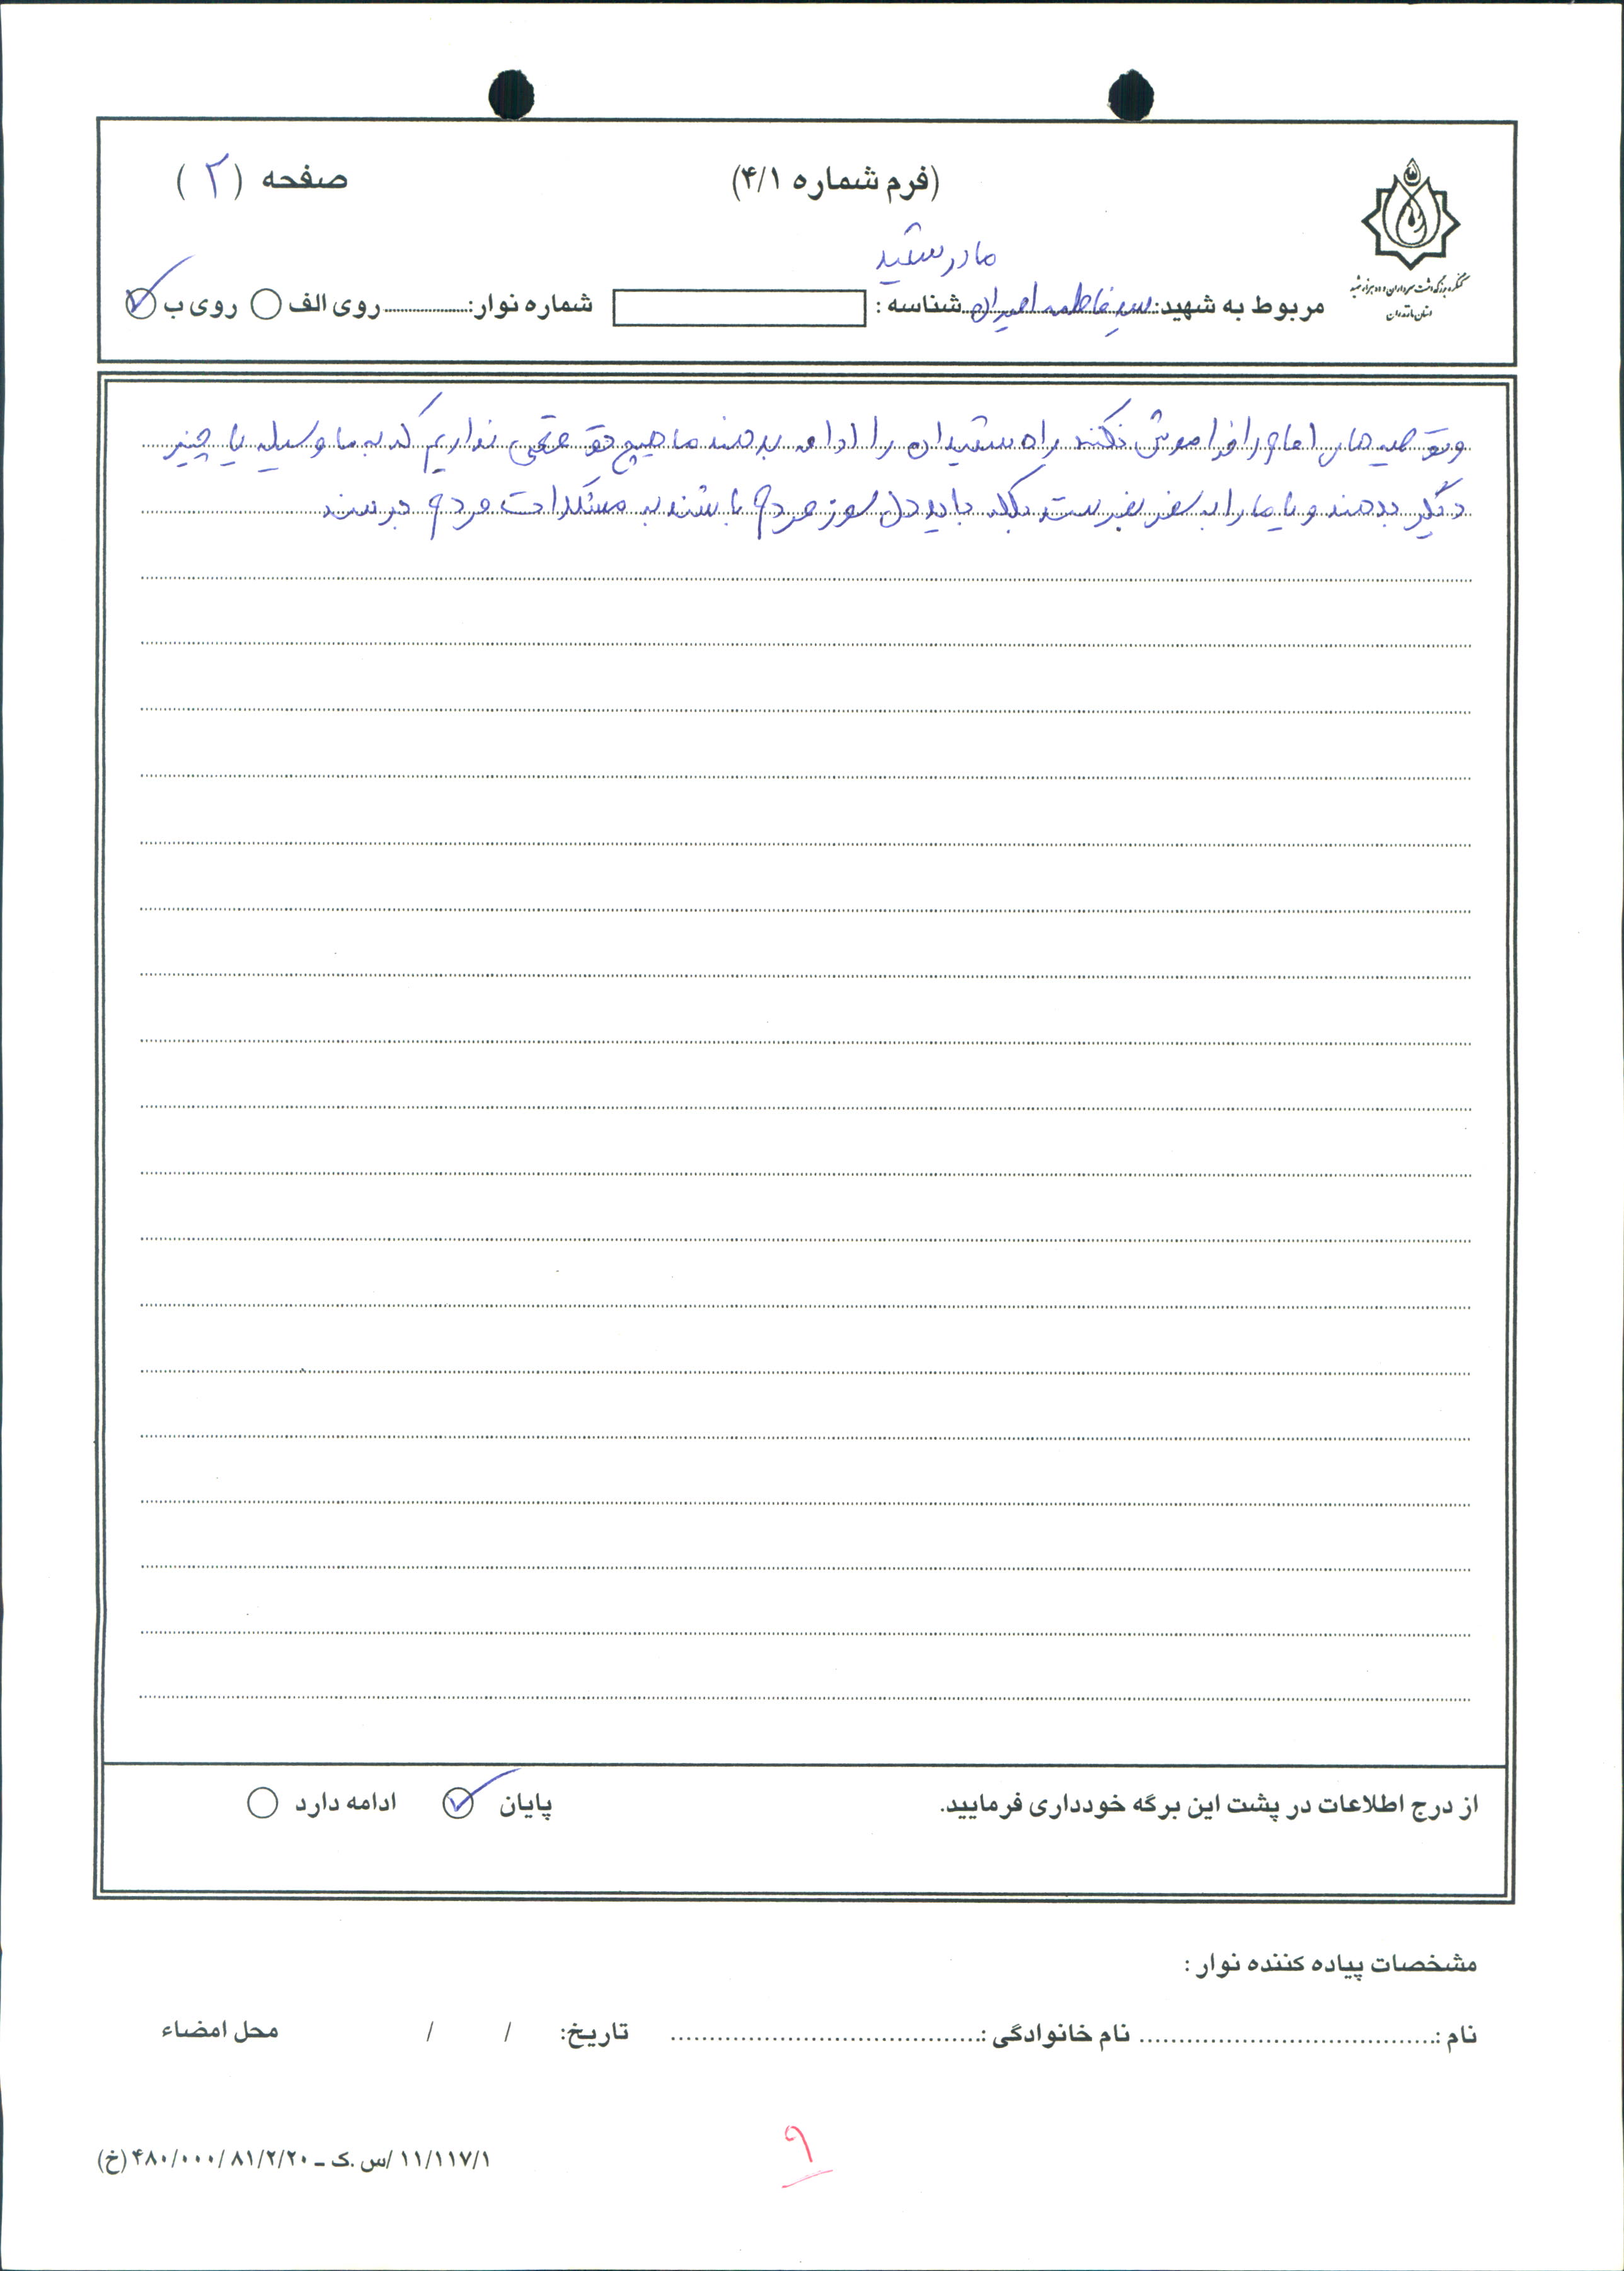 (فرم شماره ۴/۱)
صفحه (۲)
مادر شهید
مربوط به شهید: سیده فاطمه امیریان شناسه : شماره نوار: روی الف روی ب
کنگره بزرگداشت سرداران و ده هزار شهید
استان مازندران
وتوصیه های امام را فراموش نکنند راه شهیدان را ادامه بدهند ما هیچ توقعی نداریم که به ما وسیله یا چیز
دیگر بدهند و یا ما را به سفر بفرستند بلکه باید دل سوز مردم باشند به مشکلات مردم برسند
از درج اطلاعات در پشت این برگه خودداری فرمایید. پایان ادامه دارد
مشخصات پیاده کننده نوار :
نام : نام خانوادگی : تاریخ: / / محل امضاء
۹
۱۱/۱۱۷/۱ /س .ک ـ ۴۸۰/۰۰۰/۸۱/۲/۲۰ (خ)